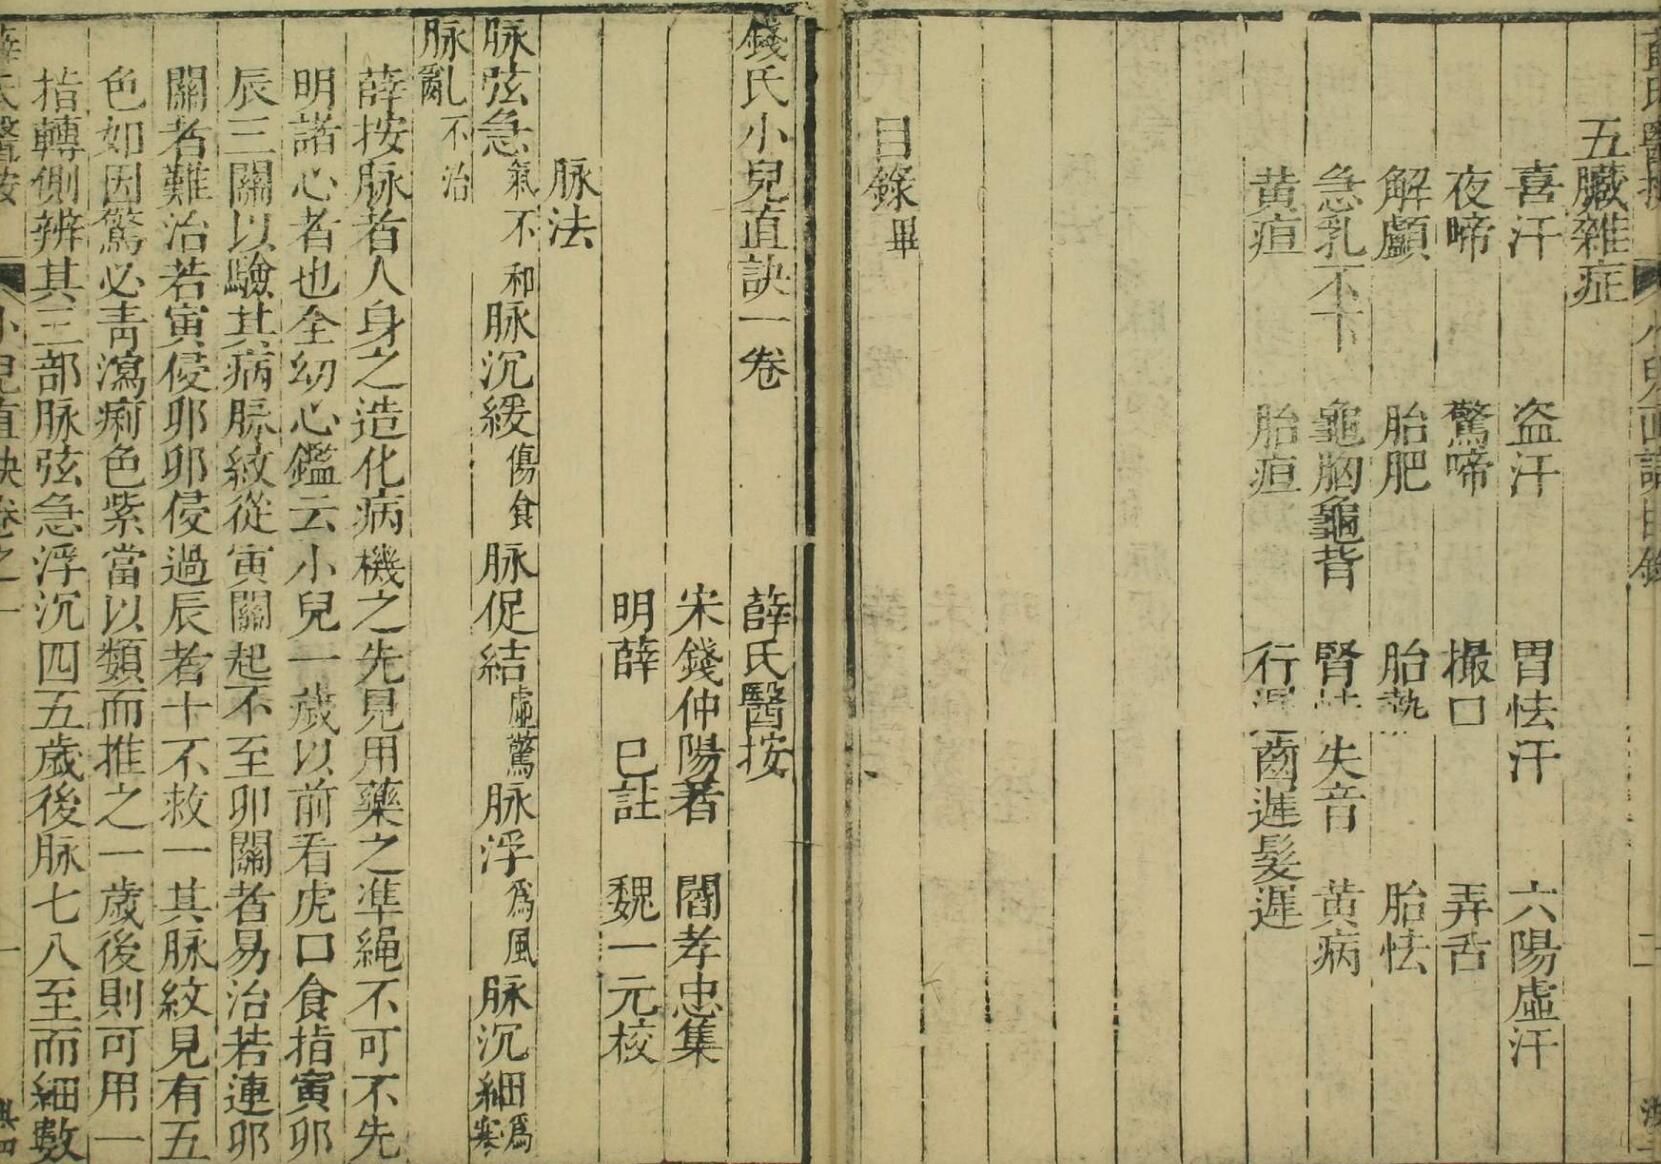 五臟雜症
喜汗 盗汗 胃怯汗 六陽虛汗
夜啼 驚啼 撮口 弄舌
解顱 胎肥 胎熱 胎怯
急乳不下 龜胸龜背 腎怯失音 黃病
黃疸 胎疸 行遲 齒遲髮遲
目錄畢
錢氏小兒直訣一卷 薛氏醫按
宋錢仲陽著 閻孝忠集
明薛 巳註 魏一元校
脉法
脉弦急氣不和 脉沉緩傷食 脉促結虛驚 脉浮爲風 脉沉細爲寒
脉亂不治
薛按脉者人身之造化病機之先見用藥之準繩不可不先
明諸心者也全幼心鑑云小兒一歲以前看虎口食指寅卯
辰三關以驗其病脉紋從寅關起不至卯關者易治若連卯
關者難治若寅侵卯卯侵過辰者十不救一其脉紋見有五
色如因驚必青瀉痢色紫當以類而推之一歲後則可用一
指轉側辨其三部脉弦急浮沉四五歲後脉七八至而細數
小兒直訣卷之一 一